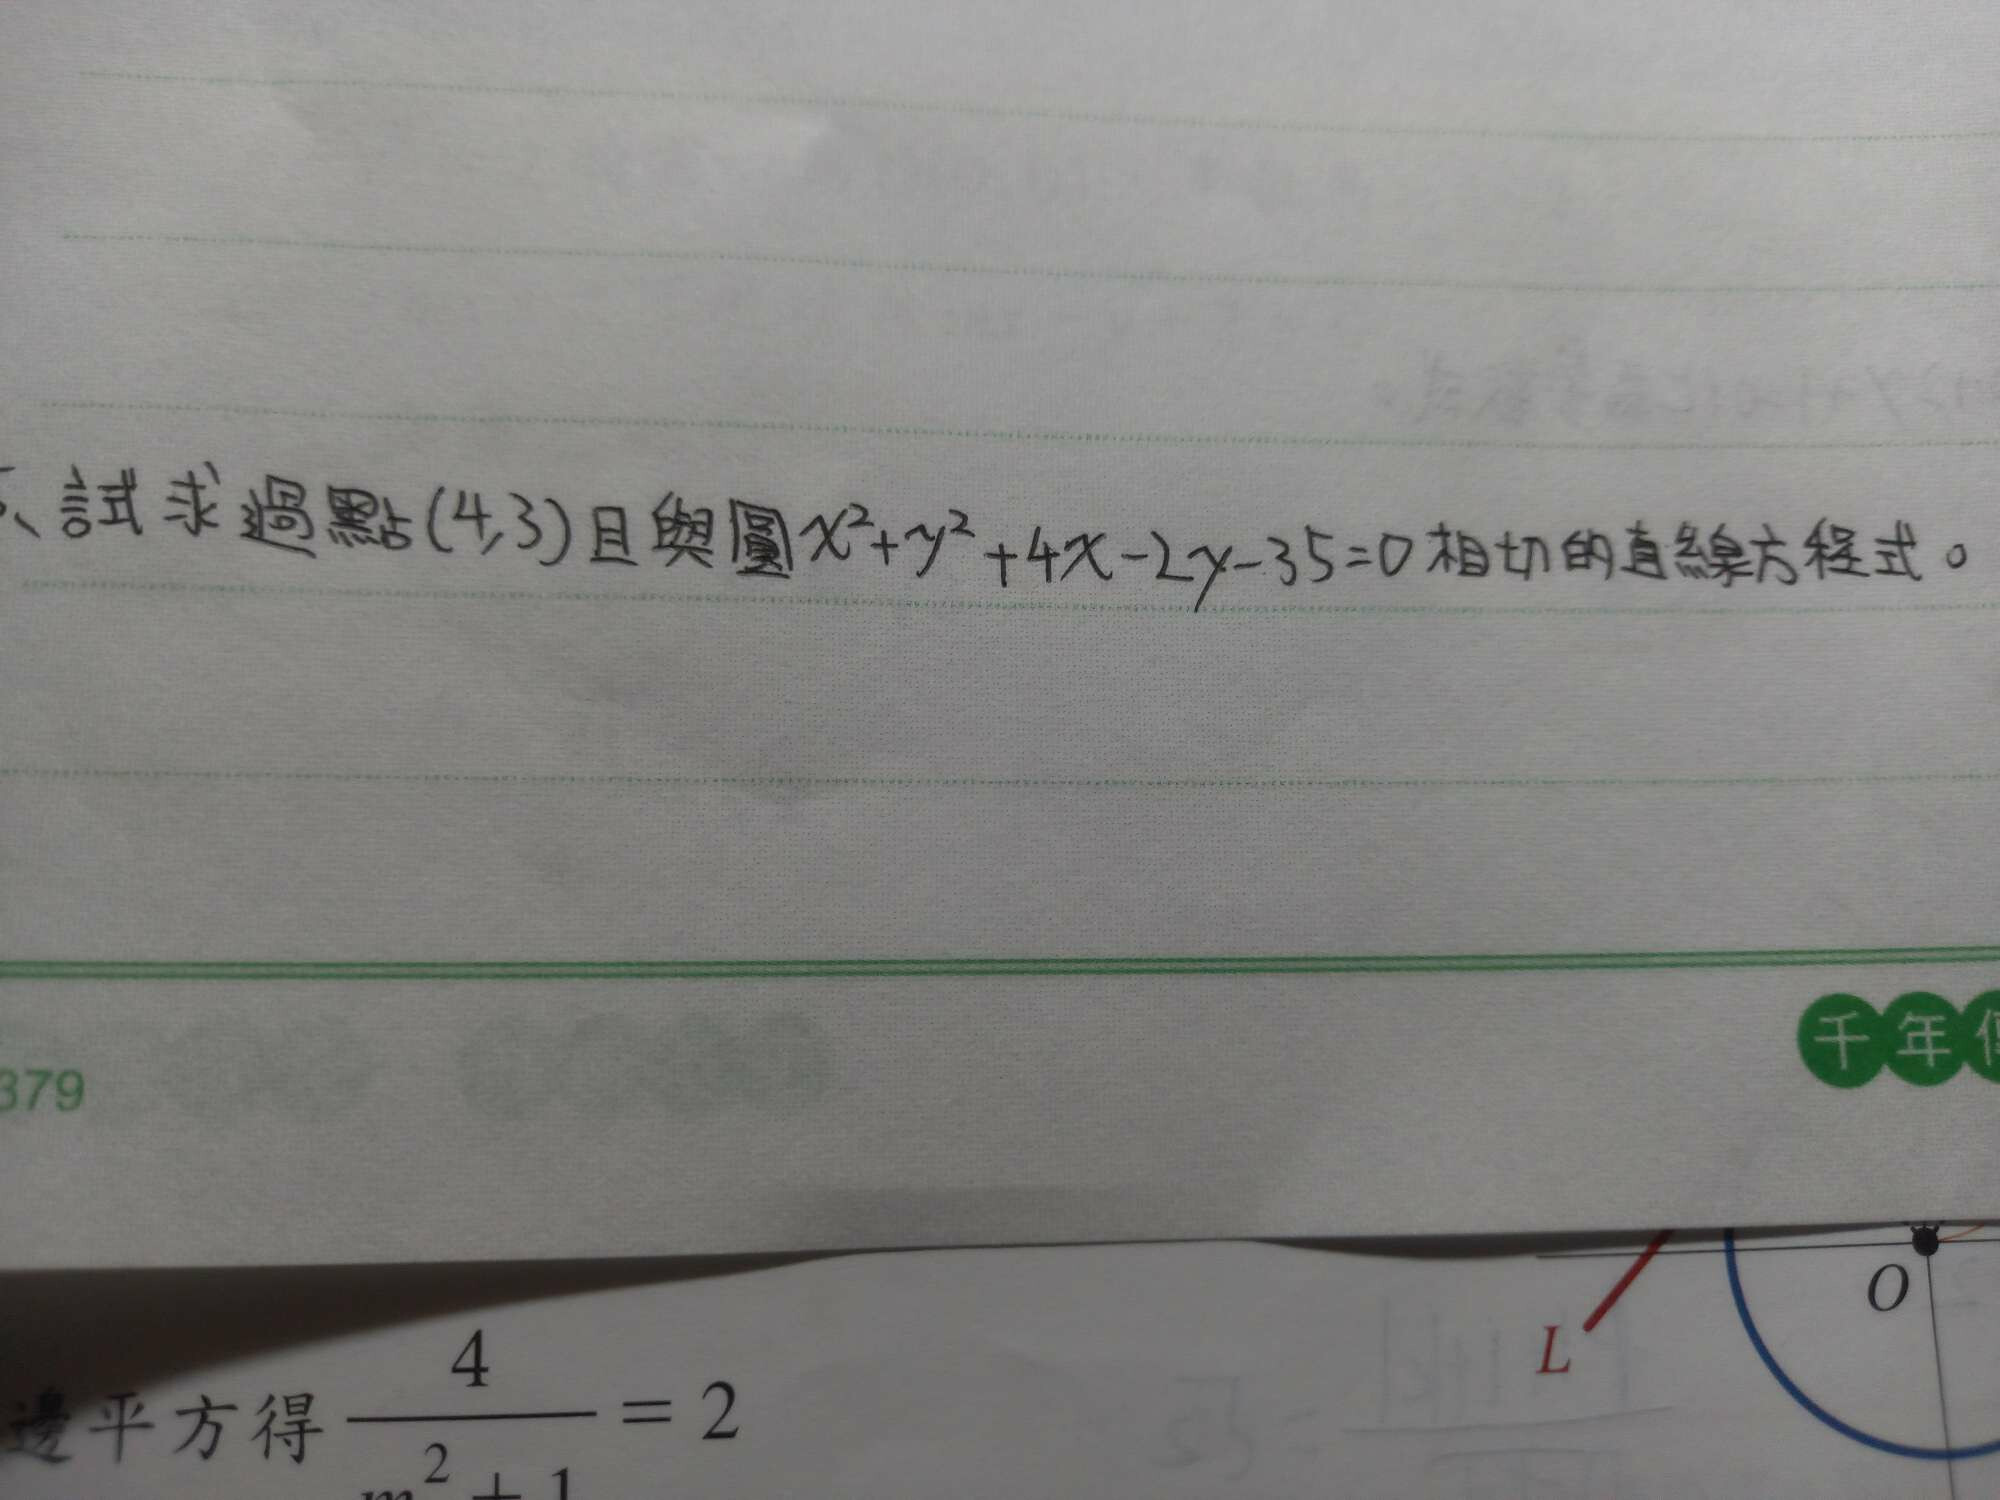 、試求過點(4,3)且與圓x²+y²+4x-2y-35=0相切的直線方程式。
379
千年
O
L
邊平方得 4/(m²+1) = 2